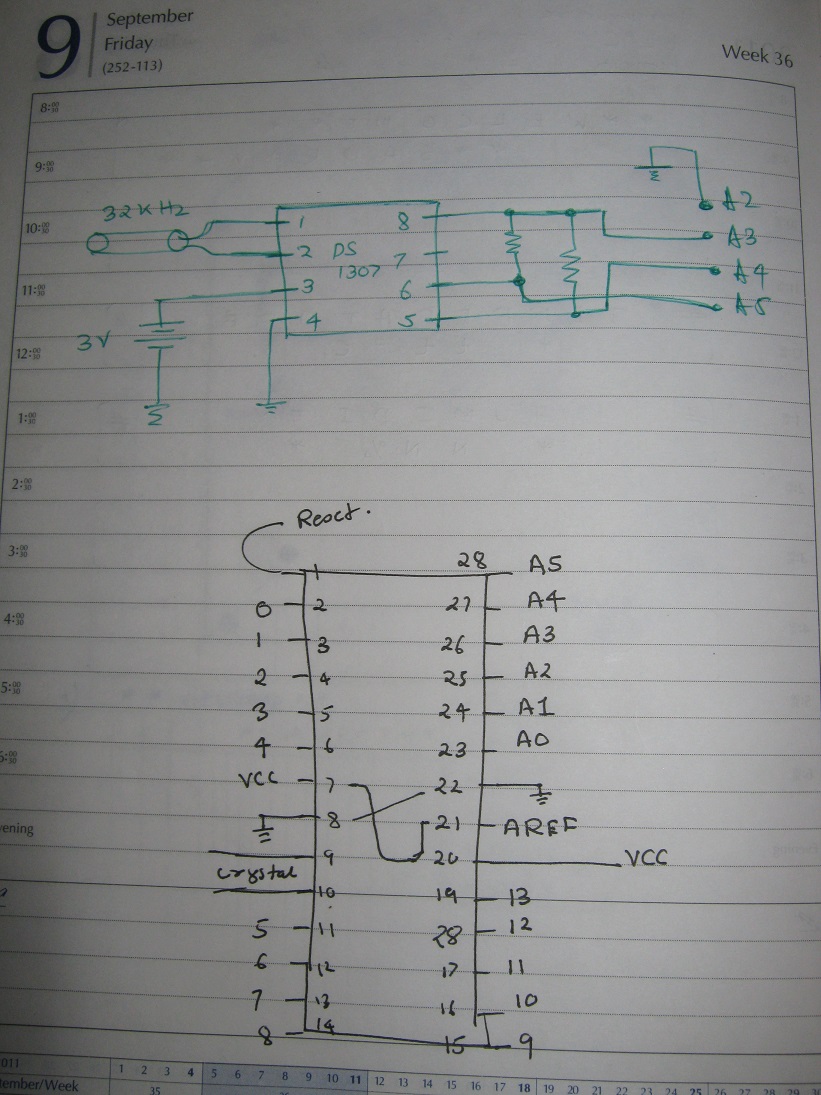 9
September
Friday
(252-113)
Week 36
8:00 30
9:00 30
10:00 30
11:00 30
12:00 30
1:00 30
2:00 30
3:00 30
4:00 30
5:00 30
32KHz
1 8
2 DS 7
1307
3 6
4 5
3V
A2
A3
A4
A5
Reset.
1 28 A5
0 2 27 A4
1 3 26 A3
2 4 25 A2
3 5 24 A1
4 6 23 A0
VCC 7 22
8 21 AREF
9 20 VCC
crystal
10 19 13
5 11 28 12
6 12 17 11
7 13 16 10
8 14 15 9
1 2 3 4 5 6 7 8 9 10 11 12 13 14 15 16 17 18 19 20 21 22 23 24 25 26 27 28 29
tember/Week 35